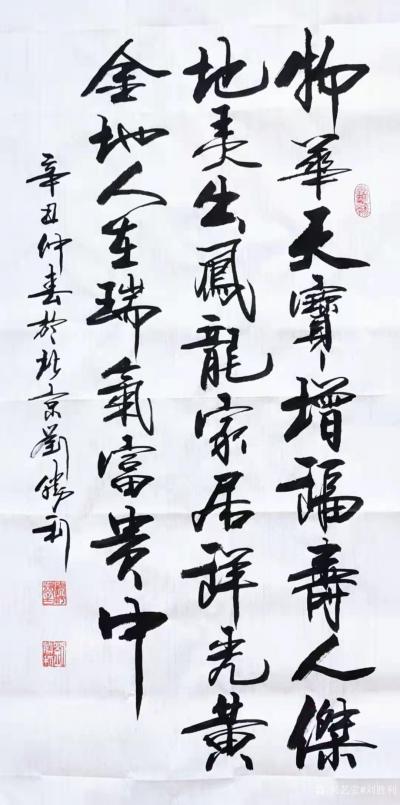 物華天寶增福壽人傑
地灵出鳳龍家居祥光黃
金地人在瑞氣富贵中
辛丑仲春於北京劉勝利
#刘胜利